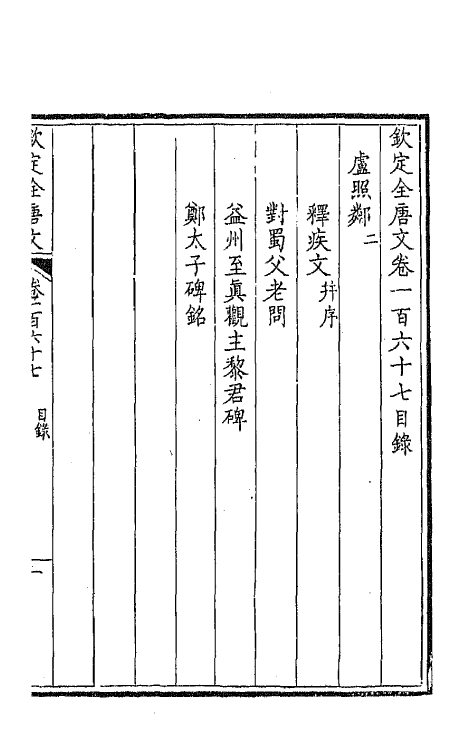 欽定全唐文卷一百六十七目錄
盧照鄰二
釋疾文并序
對蜀父老問
益州至眞觀主黎君碑
鄭太子碑銘
欽定全唐文 卷一百六十七 目錄 一